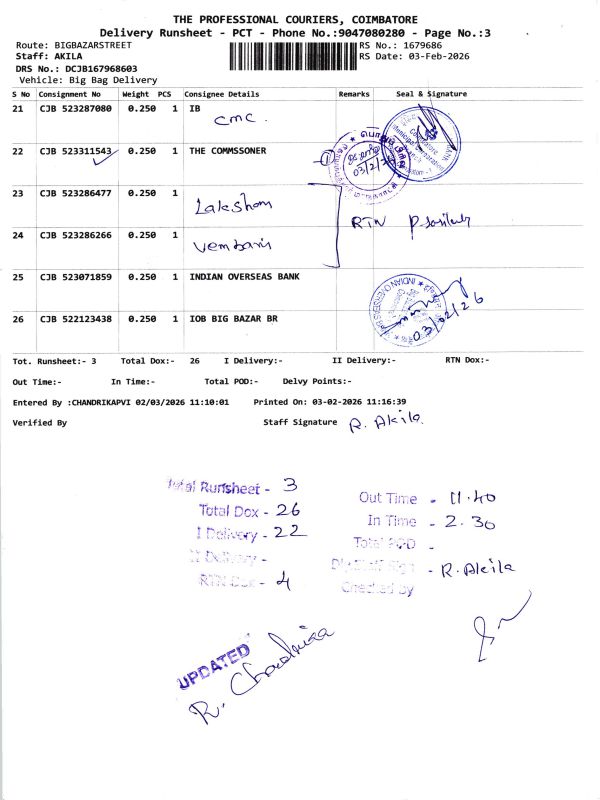 THE PROFESSIONAL COURIERS, COIMBATORE
Delivery Runsheet - PCT - Phone No.:9047080280 - Page No.:3
Route: BIGBAZARSTREET
RS No.: 1679686
Staff: AKILA
RS Date: 03-Feb-2026
DRS No.: DCJB167968603
Vehicle: Big Bag Delivery
S No Consignment No Weight PCS Consignee Details Remarks Seal & Signature
21 CJB 523287080 0.250 1 IB
CMC.
22 CJB 523311543 0.250 1 THE COMMSSONER
03/2/26
23 CJB 523286477 0.250 1 Lakshom
RTN
24 CJB 523286266 0.250 1
25 CJB 523071859 0.250 1 INDIAN OVERSEAS BANK
26 CJB 522123438 0.250 1 IOB BIG BAZAR BR
03/02/26
Tot. Runsheet:- 3 Total Dox:- 26 I Delivery:- II Delivery:- RTN Dox:-
Out Time:- In Time:- Total POD:- Delvy Points:-
Entered By :CHANDRIKAPVI 02/03/2026 11:10:01 Printed On: 03-02-2026 11:16:39
Verified By Staff Signature R. Akila.
Total Runsheet - 3
Total Dox - 26
I Delivery - 22
II Delivery -
RTN Dox - 4
Out Time - 11.40
In Time - 2.30
Total POD -
Dly.Staff Sign - R. Akila
Checked By
UPDATED
R. Chandrika